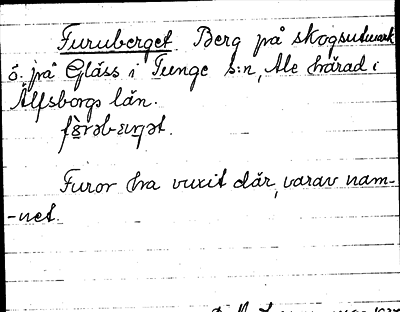 Furuberget. Berg på skogsutmark
ö. på Gläss i Tunge s:n, Ale härad i
Älfsborgs län.
Furor ha vuxit där, varav nam-
-net.